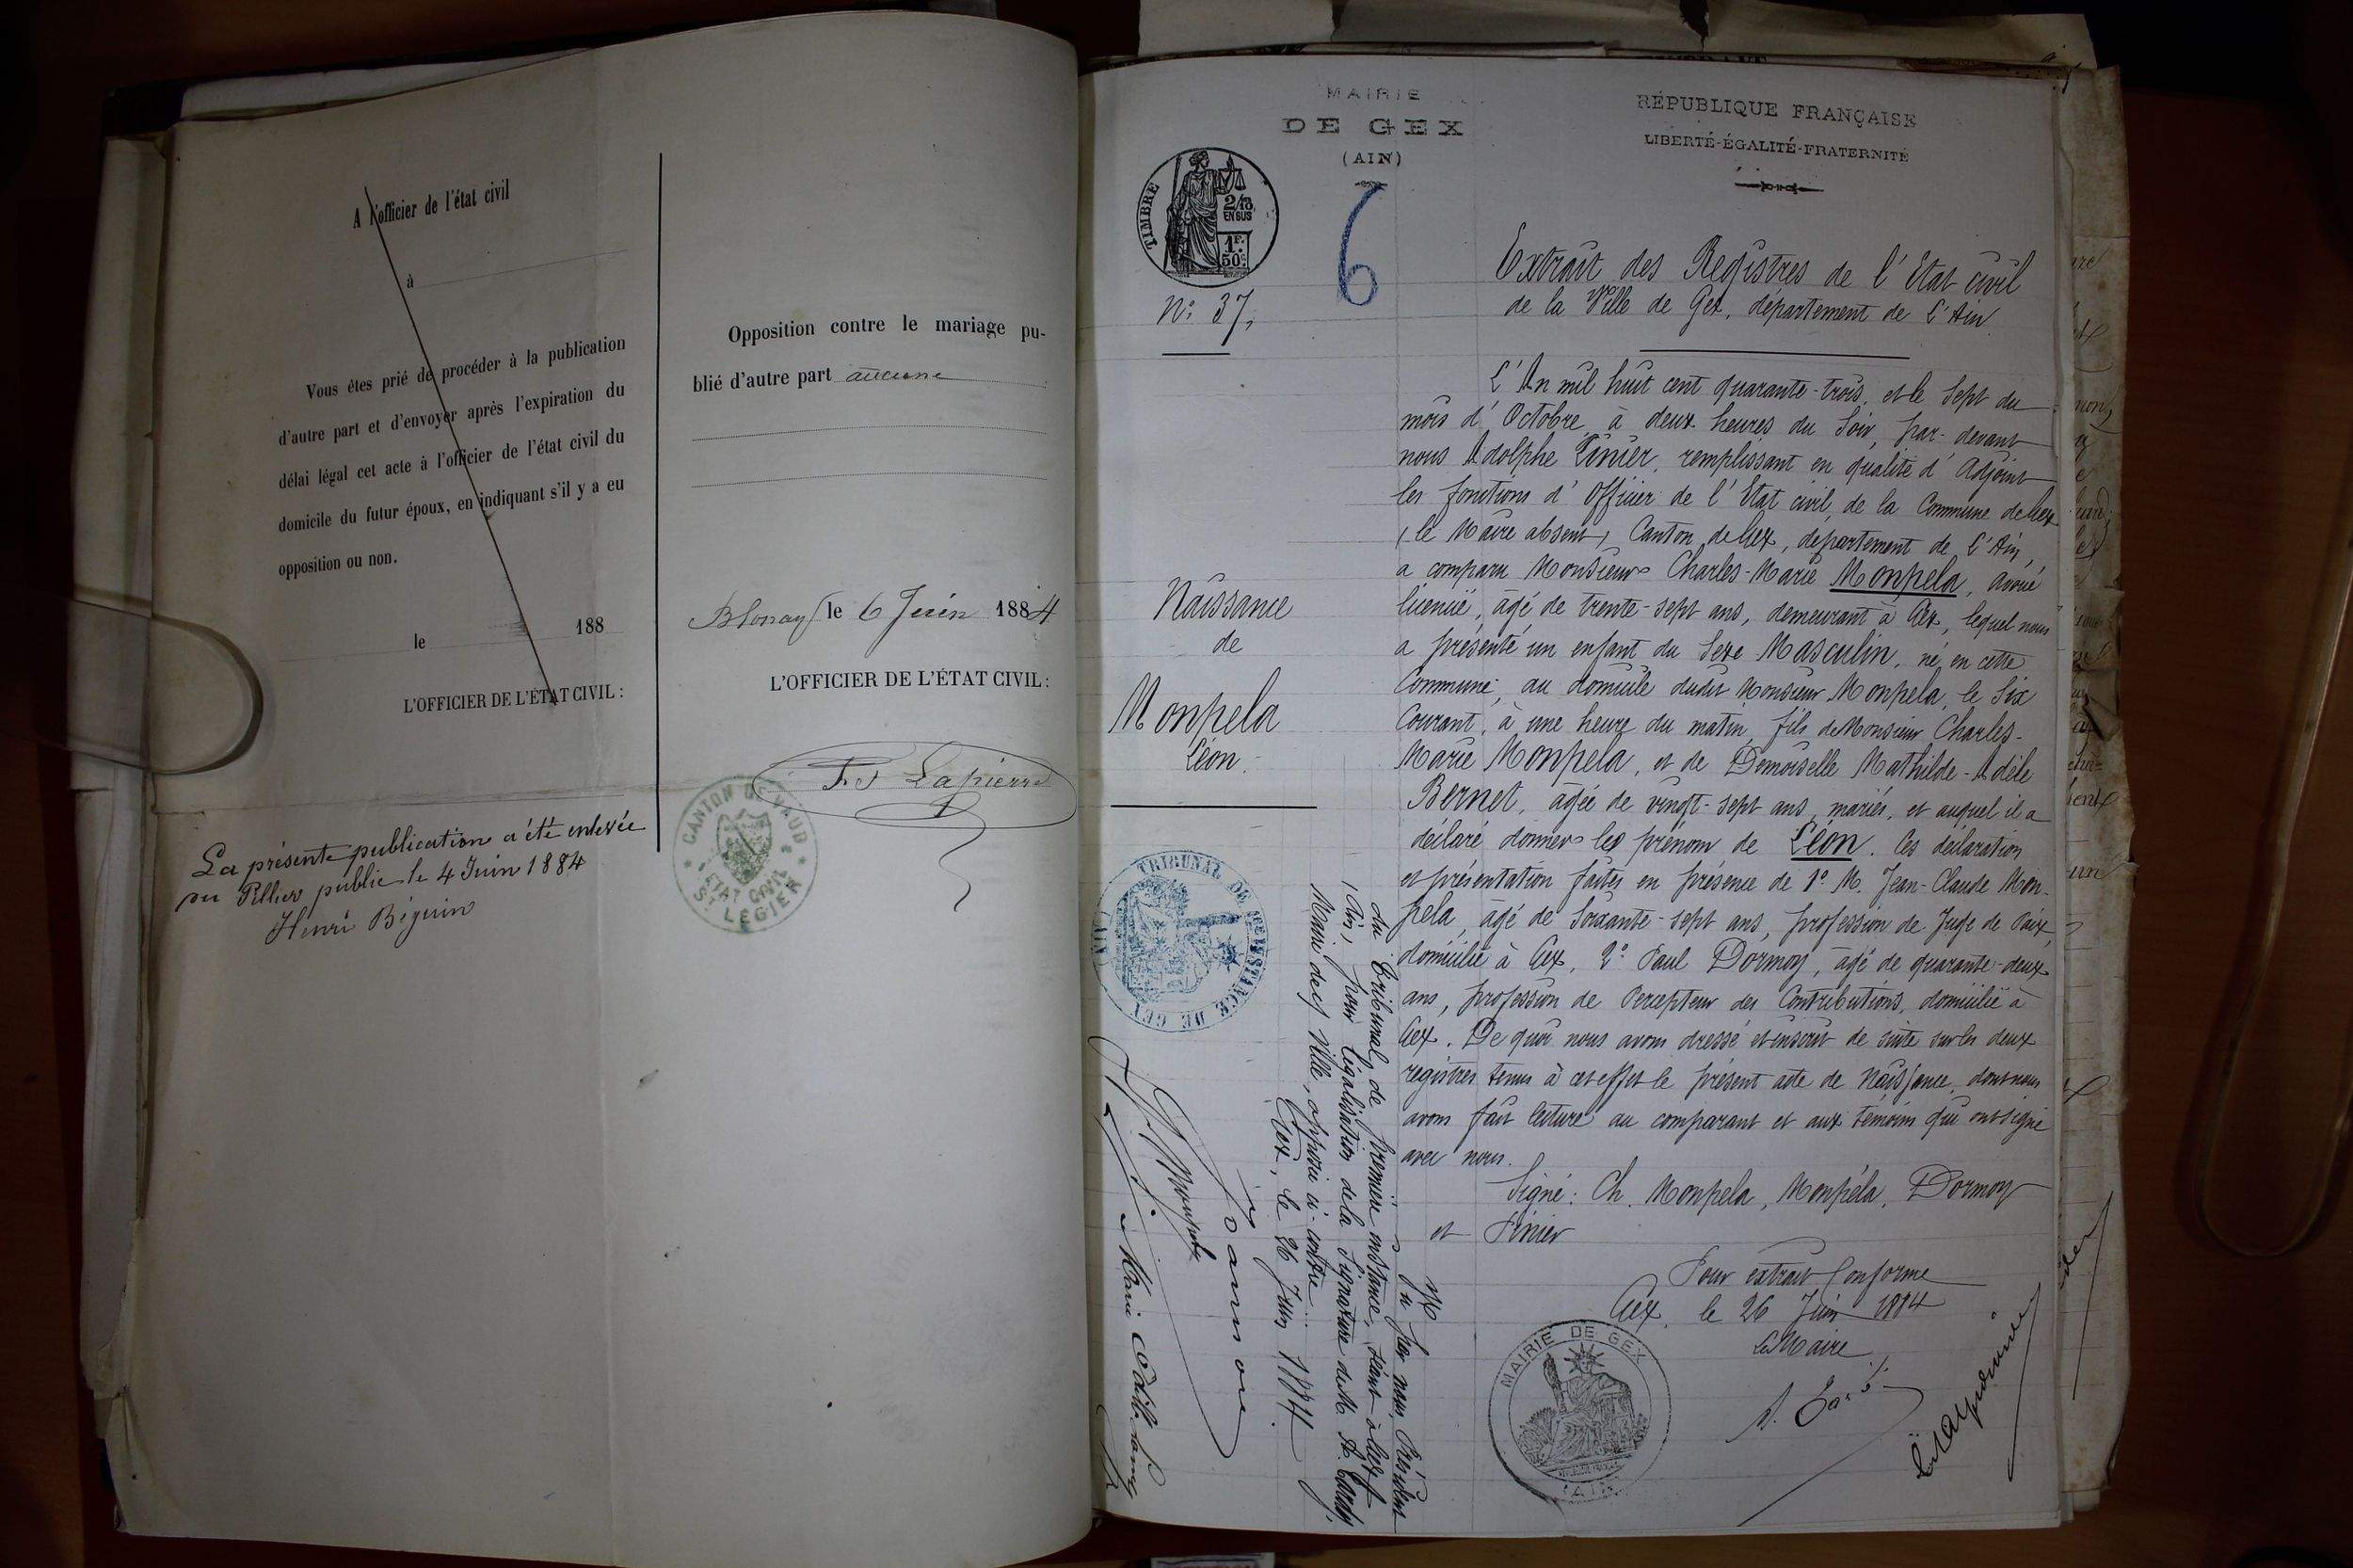 A l'officier de l'état civil
à
Vous êtes prié de procéder à la publication
d'autre part et d'envoyer après l'expiration du
délai légal cet acte à l'officier de l'état civil du
domicile du futur époux, en indiquant s'il y a eu
opposition ou non.
le 188
L'OFFICIER DE L'ÉTAT CIVIL :
La présente publication a été enlevée
au Pillier public le 4 Juin 1884
Henri Béguin
Opposition contre le mariage pu-
blié d'autre part aucune
Blonay le 6 Juin 1884
L'OFFICIER DE L'ÉTAT CIVIL :
Fs Lapierre
CANTON DE VAUD
ETAT CIVIL
ST LÉGIER
MAIRIE
DE GEX
(AIN)
TIMBRE
2/10
EN SUS
1F.
50c.
6
N° 37.
RÉPUBLIQUE FRANÇAISE
LIBERTÉ-ÉGALITÉ-FRATERNITÉ
Extrait des Registres de l'Etat civil
de la Ville de Gex, département de l'Ain.
Naissance
de
Monpela
Léon.
L'An mil huit cent quarante-trois, et le Sept du
mois d'Octobre à deux heures du Soir, par-devant
nous Adolphe Pinier, remplissant en qualité d'Adjoint
les fonctions d'Officier de l'Etat civil de la Commune de Gex
(le Maire absent) Canton de Gex, département de l'Ain,
a comparu Monsieur Charles-Marie Monpela, avoué
licencié, âgé de trente-sept ans, demeurant à Gex, lequel nous
a présenté un enfant du Sexe Masculin, né en cette
Commune, au domicile dudit Monsieur Monpela, le Six
Courant, à une heure du matin, fils de Monsieur Charles-
Marie Monpela, et de Demoiselle Mathilde-Adèle
Bernet, âgée de vingt-sept ans, mariés, et auquel il a
déclaré donner les prénom de Léon. Ces déclaration
et présentation faites en présence de 1° M. Jean-Claude Mon-
pela, âgé de Soixante-sept ans, profession de Juge de Paix,
domicilié à Gex, 2° Paul Dormoy, âgé de quarante-deux
ans, profession de Percepteur des Contributions, domicilié à
Gex. De quoi nous avons dressé et inscrit de suite sur les deux
registres tenus à cet effet le présent acte de Naissance, dont nous
avons fait lecture au comparant et aux témoins qui ont signé
avec nous.
Signé : Ch. Monpela, Monpéla, Dormoy
et Pinier
Pour extrait Conforme
Gex, le 26 Juin 1884
Le Maire
MAIRIE DE GEX
(AIN)
TRIBUNAL DE 1ère INSTANCE DE GEX
(AIN)
Vu par nous, Président
du Tribunal de première instance, séant à Gex
(Ain) pour légalisation de la Signature de M.
Maire de cette Ville, apposée ci-contre.
Gex, le 26 Juin 1884.